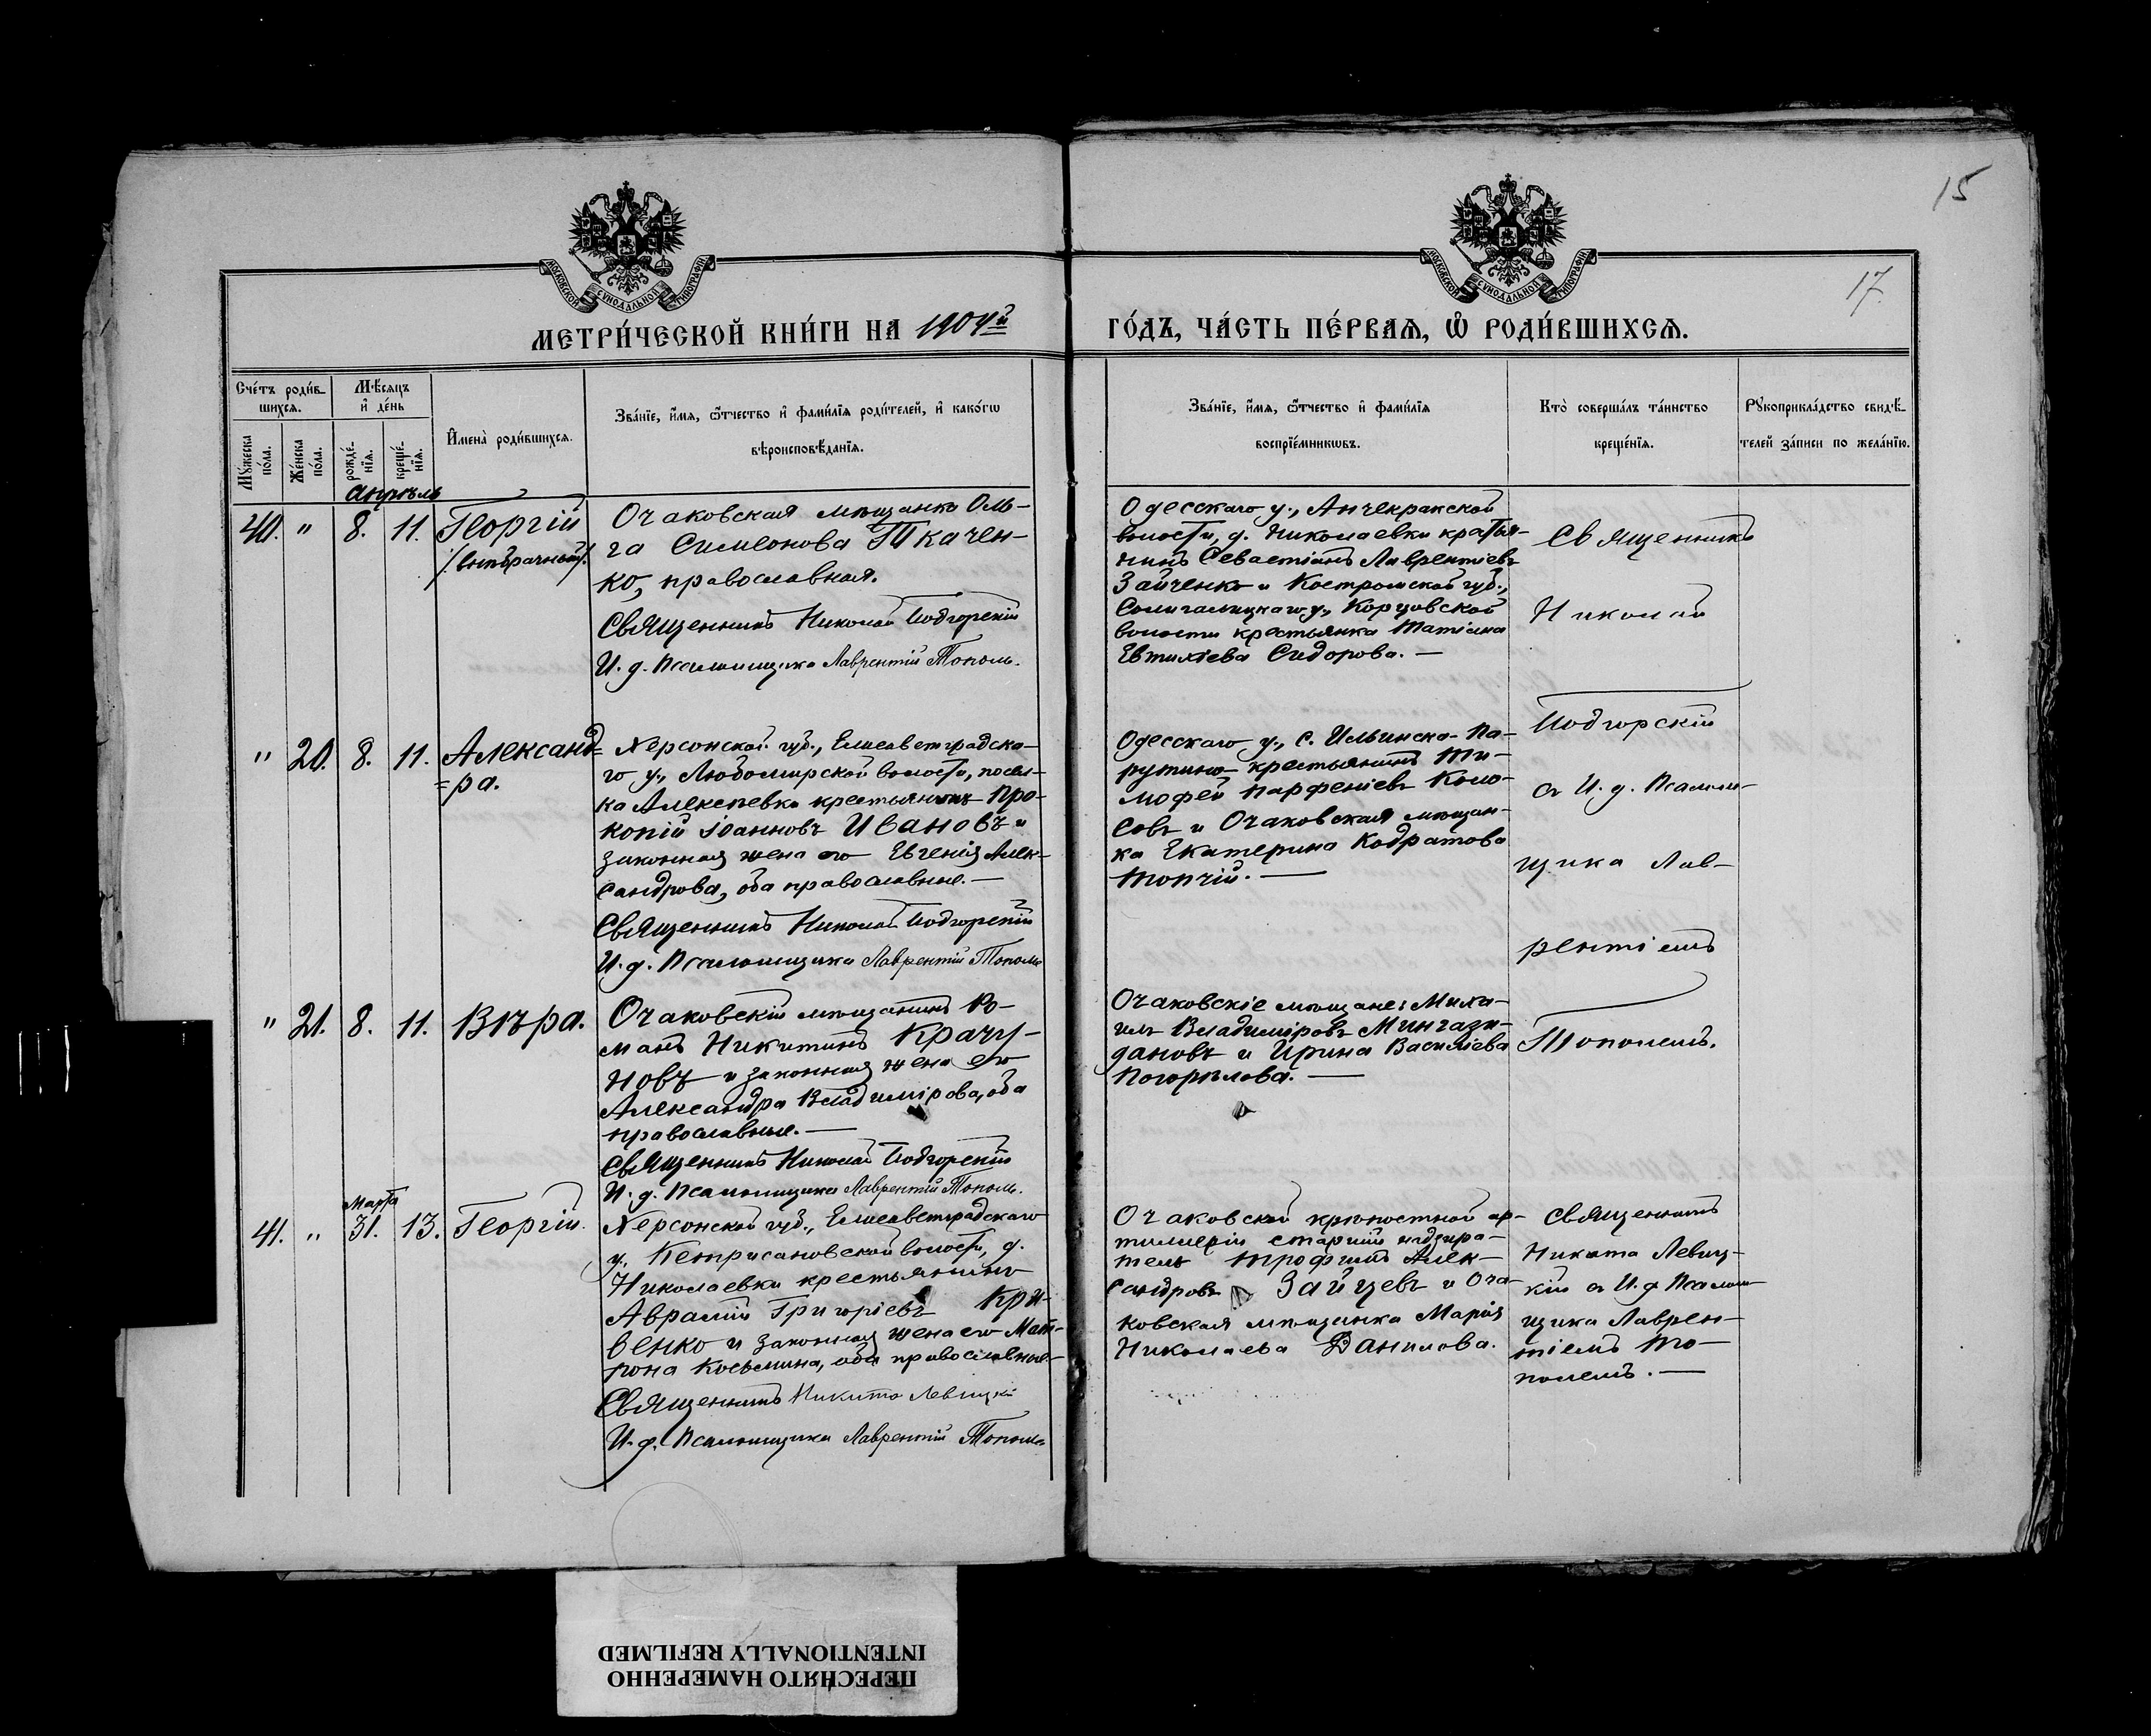 15
17.
МОСКОВСКОЙ СУНОДАЛЬНОЙ ТИПОГРАФІИ
МОСКОВСКОЙ СУНОДАЛЬНОЙ ТИПОГРАФІИ
МЕТРИ́ЧЕСКОЙ КНИ́ГИ НА 1904й
ГО́ДЪ, ЧА́СТЬ ПЕ́РВАЯ, Ѡ҆ РОДИ́ВШИХСЯ.
Сче́тъ роди́в-
шихся.
Му́жеска по́ла.
Же́нска по́ла.
Мѣ́сяцъ
и҆ де́нь
рожде́-
нїя.
креще́-
нїя.
И҆мена̀ роди́вшихся.
Зва́нїе, и҆́мя, ѻ҆́тчество и҆ фами́лїя роди́телей, и҆ како́гѡ
вѣроисповѣ́данїя.
Зва́нїе, и҆́мя, ѻ҆́тчество и҆ фами́лїя
воспрїе́мникѡвъ.
Кто̀ соверша́лъ та́инство
креще́нїя.
Рꙋкоприкла́дство свидѣ́-
телей за́писи по жела́нїю.
Апрѣль
40. " 8. 11. Георгій
/:внѣбрачный:/
Очаковская мѣщанка Оль-
га Симеонова Ткачен-
ко, православная.
Священникъ Николай Подгорскій
И. д. Псаломщика Лаврентій Тополь.
Одесскаго у., Анчекракской
волости, д. Николаевки крестья-
нинъ Севастіанъ Лаврентіевъ
Зайченко и Костромской губ.,
Солигалицкаго у., Корцовской
волости крестьянка Татіана
Евтихіева Сидорова. —
Священникъ
Николай
Подгорскій
съ И. д. Псалом-
щика Лав-
рентіемъ
Тополемъ.
" 20. 8. 11. Александ-
=ра.
Херсонской губ., Елисаветградска-
го у., Любомирской волости, посел-
ка Алексѣевки крестьянинъ Про-
копій Іоанновъ Ивановъ и
законная жена его Евгенія Алек-
сандрова, оба православные. —
Священникъ Николай Подгорскій
И. д. Псаломщика Лаврентій Тополь
Одесскаго у., с. Ильинска-Па-
рутино крестьянинъ Ти-
мофей Парфеніевъ Коло-
совъ и Очаковская мѣщан-
ка Екатерина Кодратова
Топчій. —
" 21. 8. 11. Вѣра.
Очаковскій мѣщанинъ Ро-
манъ Никитинъ Крачу-
новъ и законная жена его
Александра Владимірова, оба
православные. —
Священникъ Николай Подгорскій
И. д. Псаломщика Лаврентій Тополь.
Очаковскіе мѣщане: Миха-
илъ Владиміровъ Мингази-
дановъ и Ирина Василіева
Погорѣлова. —
Марта
41. " 31. 13. Георгій.
Херсонской губ., Елисаветградскаго
у., Кетрисановской волости, д.
Николаевки крестьянинъ
Аврамій Григоріевъ Кри-
венко и законная жена его Мат-
рона Косьмина, оба православные. —
Священникъ Никита Левицкій
И. д. Псаломщика Лаврентій Тополь
Очаковской крѣпостной ар-
тиллеріи старшій надзира-
тель Трофимъ Алек-
сандровъ Зайцевъ и Оча-
ковская мѣщанка Марія
Николаева Данилова.
Священникъ
Никита Левиц-
кій съ И. д Псалом-
щика Лаврен-
тіемъ То-
полемъ. —
ПЕРЕСНЯТО НАМЕРЕННО
INTENTIONALLY REFILMED